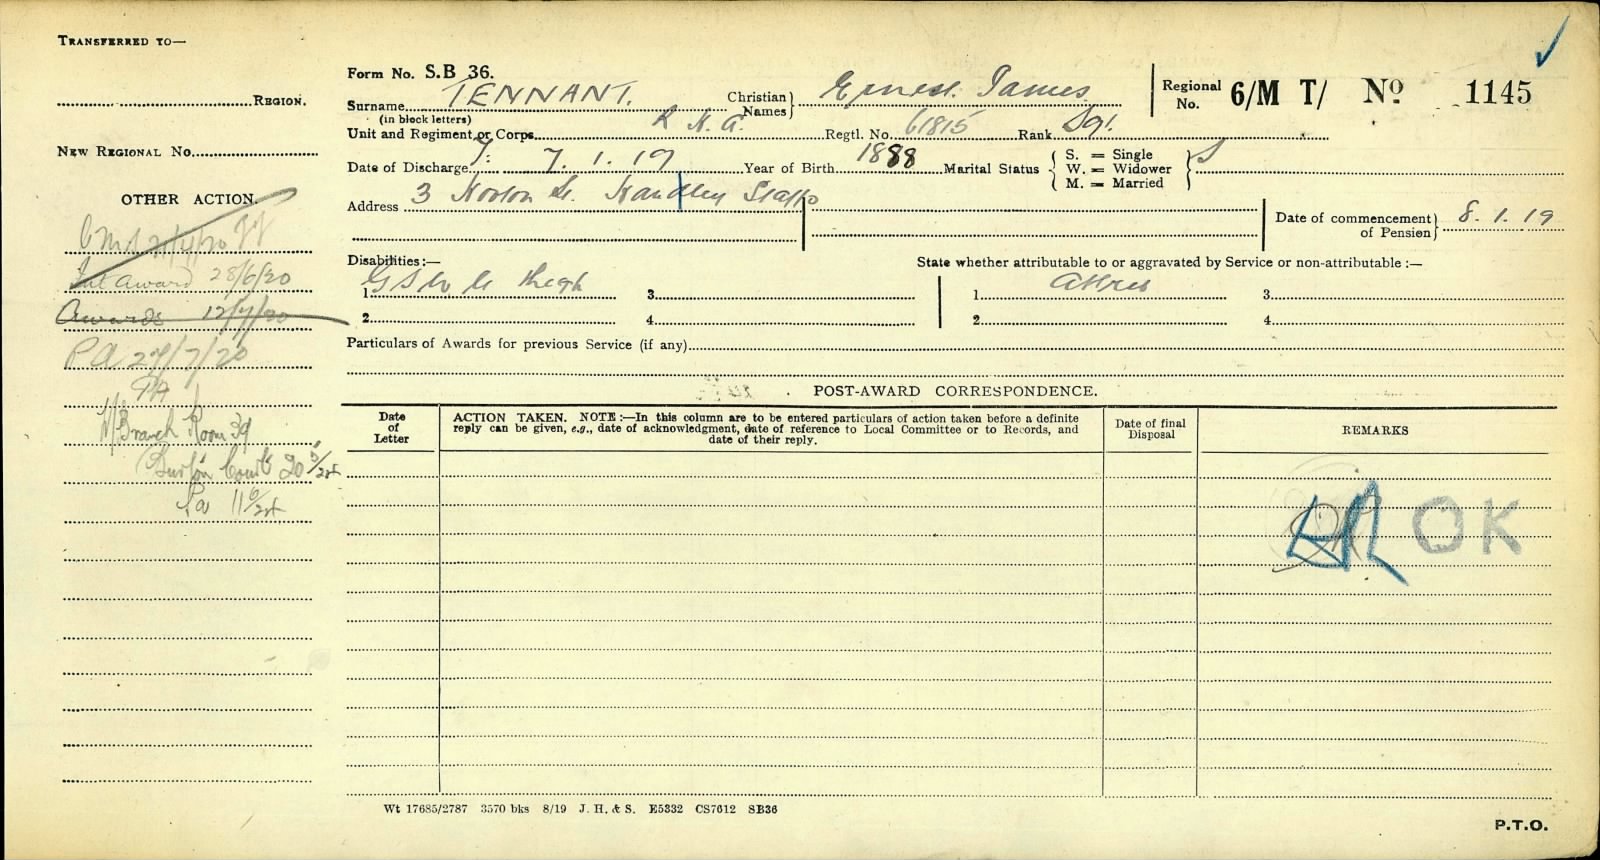 TRANSFERRED TO—
REGION.
NEW REGIONAL No.
OTHER ACTION.
28/6/20
Awards 12/7/20
P A 27/7/20
PA
M Branch Room 39
20 5/24
Pa 11 6/24
Form No. S.B 36.
Surname TENNANT. Christian Names} Ernest James
(in block letters)
Regional No. 6/M T/ No 1145
Unit and Regiment or Corps Regtl. No. 61815 Rank Sgt.
Date of Discharge 7.1.19 Year of Birth 1888 Marital Status { S. = Single W. = Widower M. = Married } S
Address 3 St. Staffs
Date of commencement of Pension} 8.1.19
Disabilities:—
State whether attributable to or aggravated by Service or non-attributable :—
1 G S W Thigh 3
1 3
2 4
2 4
Particulars of Awards for previous Service (if any)
POST-AWARD CORRESPONDENCE.
Date of Letter
ACTION TAKEN. NOTE:—In this column are to be entered particulars of action taken before a definite
reply can be given, e.g., date of acknowledgment, date of reference to Local Committee or to Records, and
date of their reply.
Date of final Disposal
REMARKS
OK
Wt 17685/2787 3570 bks 8/19 J. H. & S. E5332 CS7612 SB36
P.T.O.